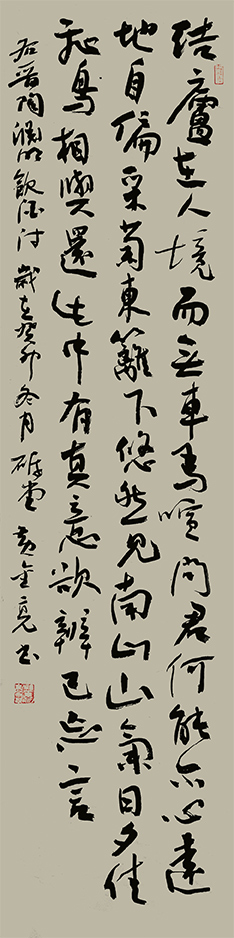 结廬在人境而无車馬喧问君何能尔心遠
地自偏采菊東籬下悠然见南山山氣日夕佳
飛鳥相與還此中有真意欲辨已忘言
右晋陶渊明飲酒诗 歲在癸卯冬月 堂 黄金亮书